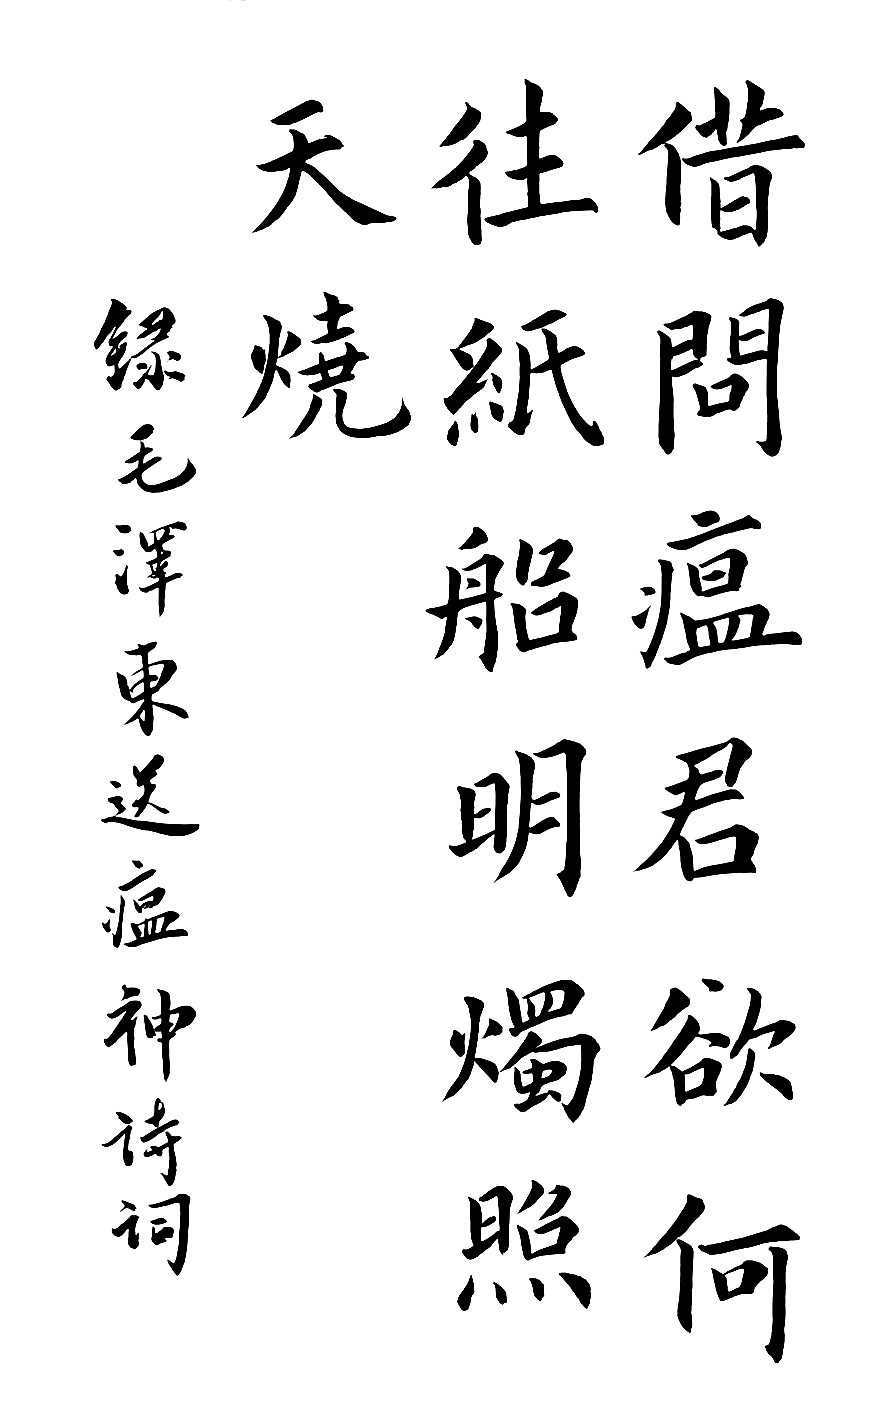 借問瘟君欲何
往紙船明燭照
天燒
錄毛澤東送瘟神诗词